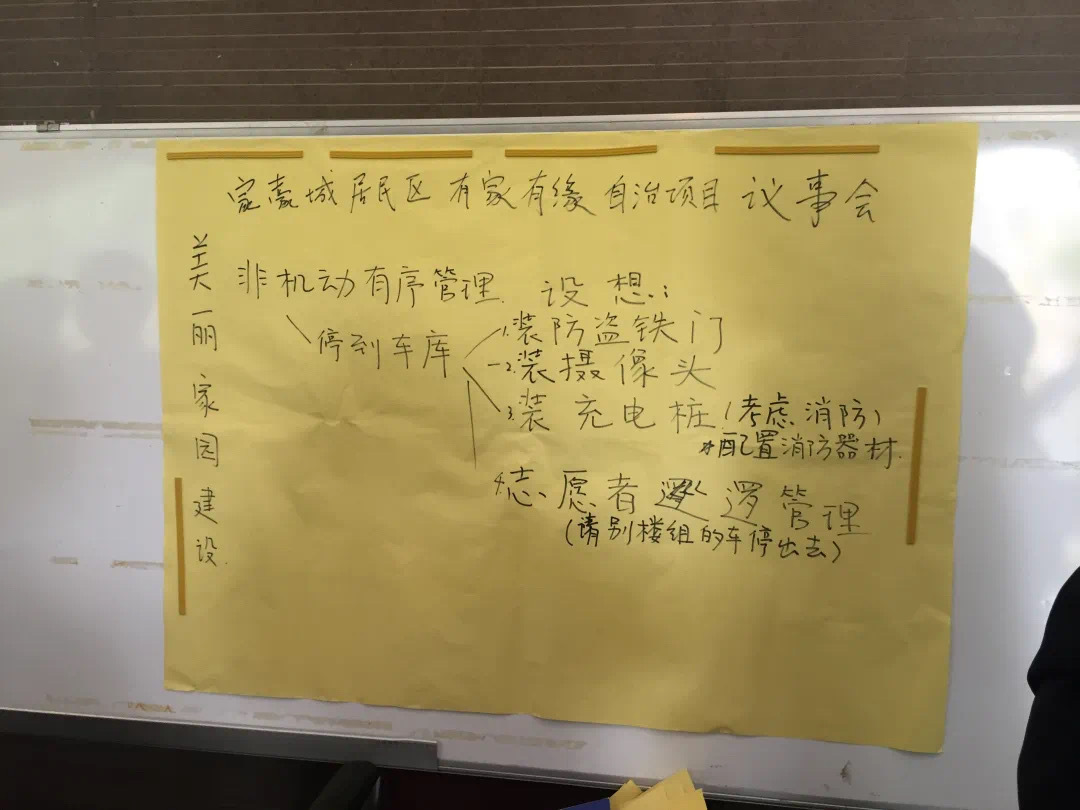 家豪城居民区 有家有缘 自治项目 议事会
美丽家园建设.
非机动有序管理. 设想:
停到车库
1.装防盗铁门
2.装摄像头
3.装充电桩(考虑消防)
配置消防器材.
4.志愿者 逻管理
(请别楼组的车停出去)